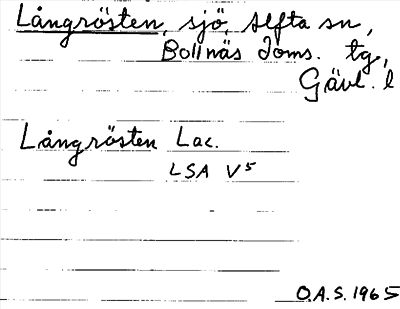 Långrösten, sjö, Alfta sn,
Bollnäs doms. tg,
Gävl. l
Långrösten Lac.
LSA V⁵
O.A.S. 1965